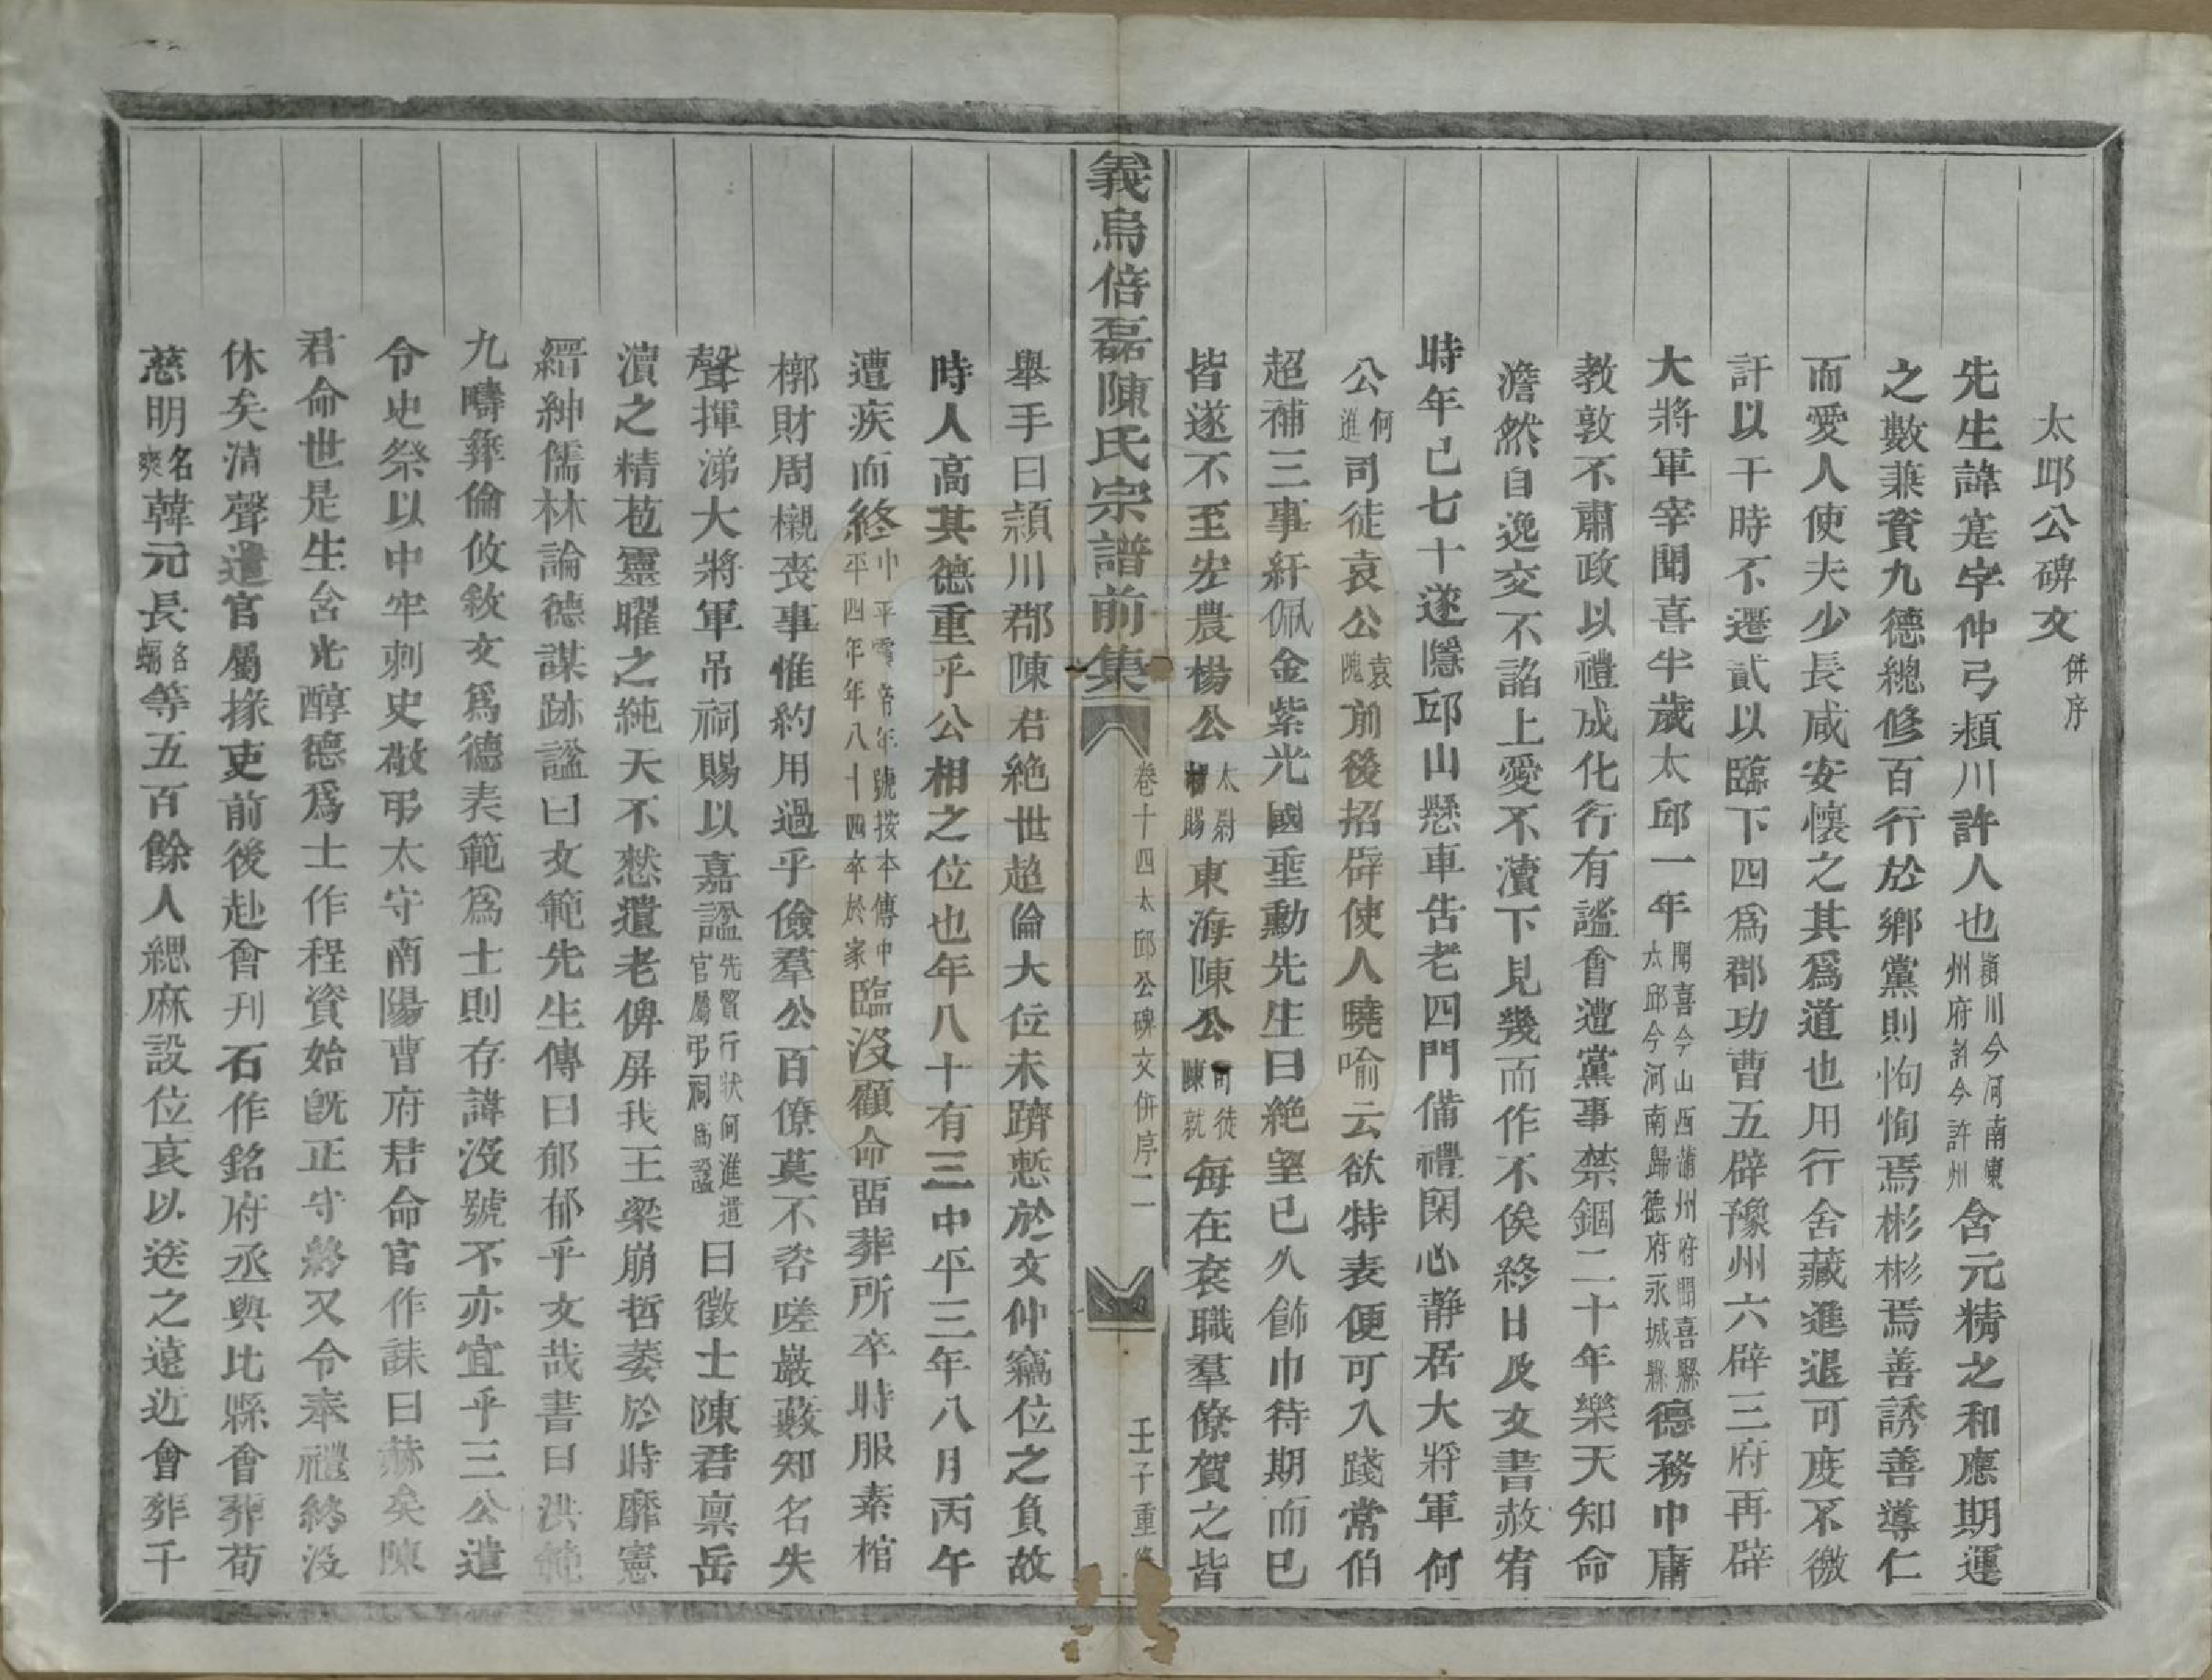 太邱公碑文 併序
先生諱寔字仲弓潁川許人也 潁川今河南東州府許今許州 含元精之和應期運
之數兼資九德總修百行於鄉黨則恂恂焉彬彬焉善誘善導仁
而愛人使夫少長咸安懷之其爲道也用行舍藏進退可度不徼
訐以干時不遷貳以臨下四爲郡功曹五辟豫州六辟三府再辟
大將軍宰聞喜半歲太邱一年 聞喜今山西蒲州府聞喜縣太邱今河南歸德府永城縣 德務中庸
教敦不肅政以禮成化行有謐會遭黨事禁錮二十年樂天知命
澹然自逸交不諂上愛不瀆下見幾而作不俟終日及文書赦宥
時年已七十遂隱邱山懸車告老四門備禮閑心靜居大將軍何
公 何進 司徒袁公 袁隗 前後招辟使人曉喻云欲特表便可入踐常伯
超補三事紆佩金紫光國垂勳先生曰絶望已久飾巾待期而已
皆遂不至宏農楊公 太尉楊賜 東海陳公 司徒陳就 每在袞職羣僚賀之皆
義烏倍磊陳氏宗譜前集
卷十四太邱公碑文併序二
壬子重修
舉手曰潁川郡陳君絶世超倫大位未躋慙於文仲竊位之負故
時人高其德重乎公相之位也年八十有三中平三年八月丙午
遭疾而終 中平靈帝年號按本傳中平四年年八十四卒於家 臨沒顧命畱葬所卒時服素棺
槨財周櫬喪事惟約用過乎儉羣公百僚莫不咨嗟巖藪知名失
聲揮涕大將軍吊祠賜以嘉謚 先賢行狀何進遣官屬弔祠爲謚 曰徵士陳君禀岳
瀆之精苞靈曜之純天不慭遺老俾屏我王梁崩哲萎於時靡憲
縉紳儒林論德謀跡謚曰文範先生傳曰郁郁乎文哉書曰洪範
九疇彝倫攸敘文爲德表範爲士則存諱沒號不亦宜乎三公遣
令史祭以中牢刺史敬弔太守南陽曹府君命官作誄曰赫矣陳
君命世是生含光醇德爲士作程資始旣正守終又令奉禮終沒
休矣淸聲遣官屬掾吏前後赴會刊石作銘府丞與比縣會葬荀
慈明 名爽 韓元長 名 等五百餘人緦麻設位哀以送之遠近會葬千